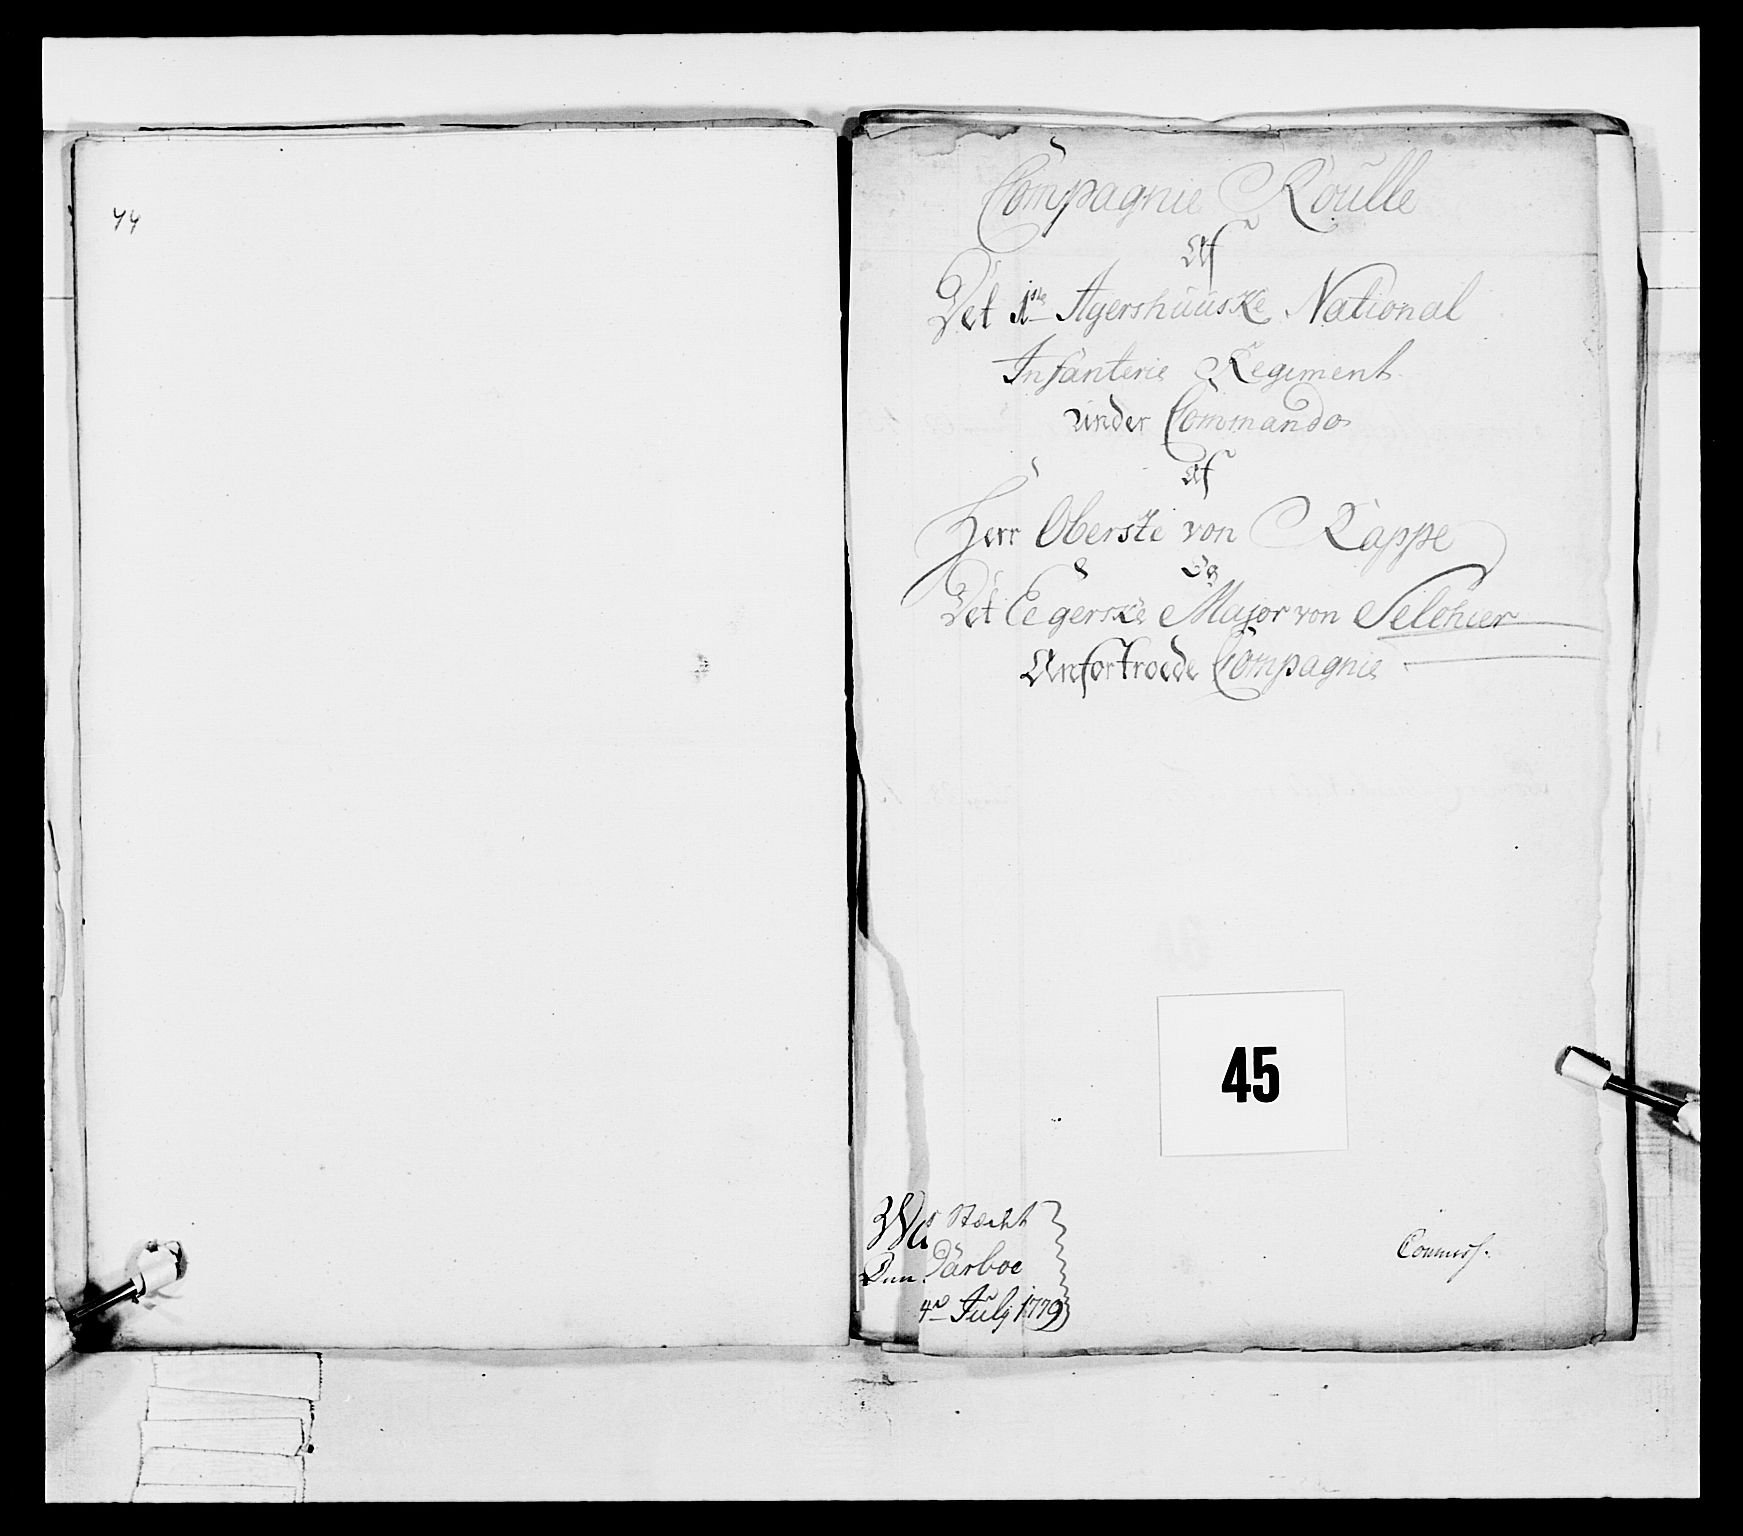 44
Compagnie Roulle
Af
Det 1ste Agershuuske National
Infanterie Regiment
under Commando
Af
Herr Oberste von Kappe
Og
Det Eegerske Major von Selchier
Anfortroede Compagnie
45
Den
4de July 1779